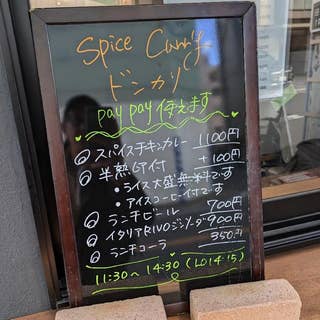 Spice Curry
ドンカリ
paypay使えます
スパイスチキンカレー 1100円
半熟付 +100円
・ライス大盛無料です
・アイスコーヒー付です
ランチビール 700円
イタリアRIVOジンソーダ 900円
ランチコーラ 350円
11:30〜14:30 (LO14:15)